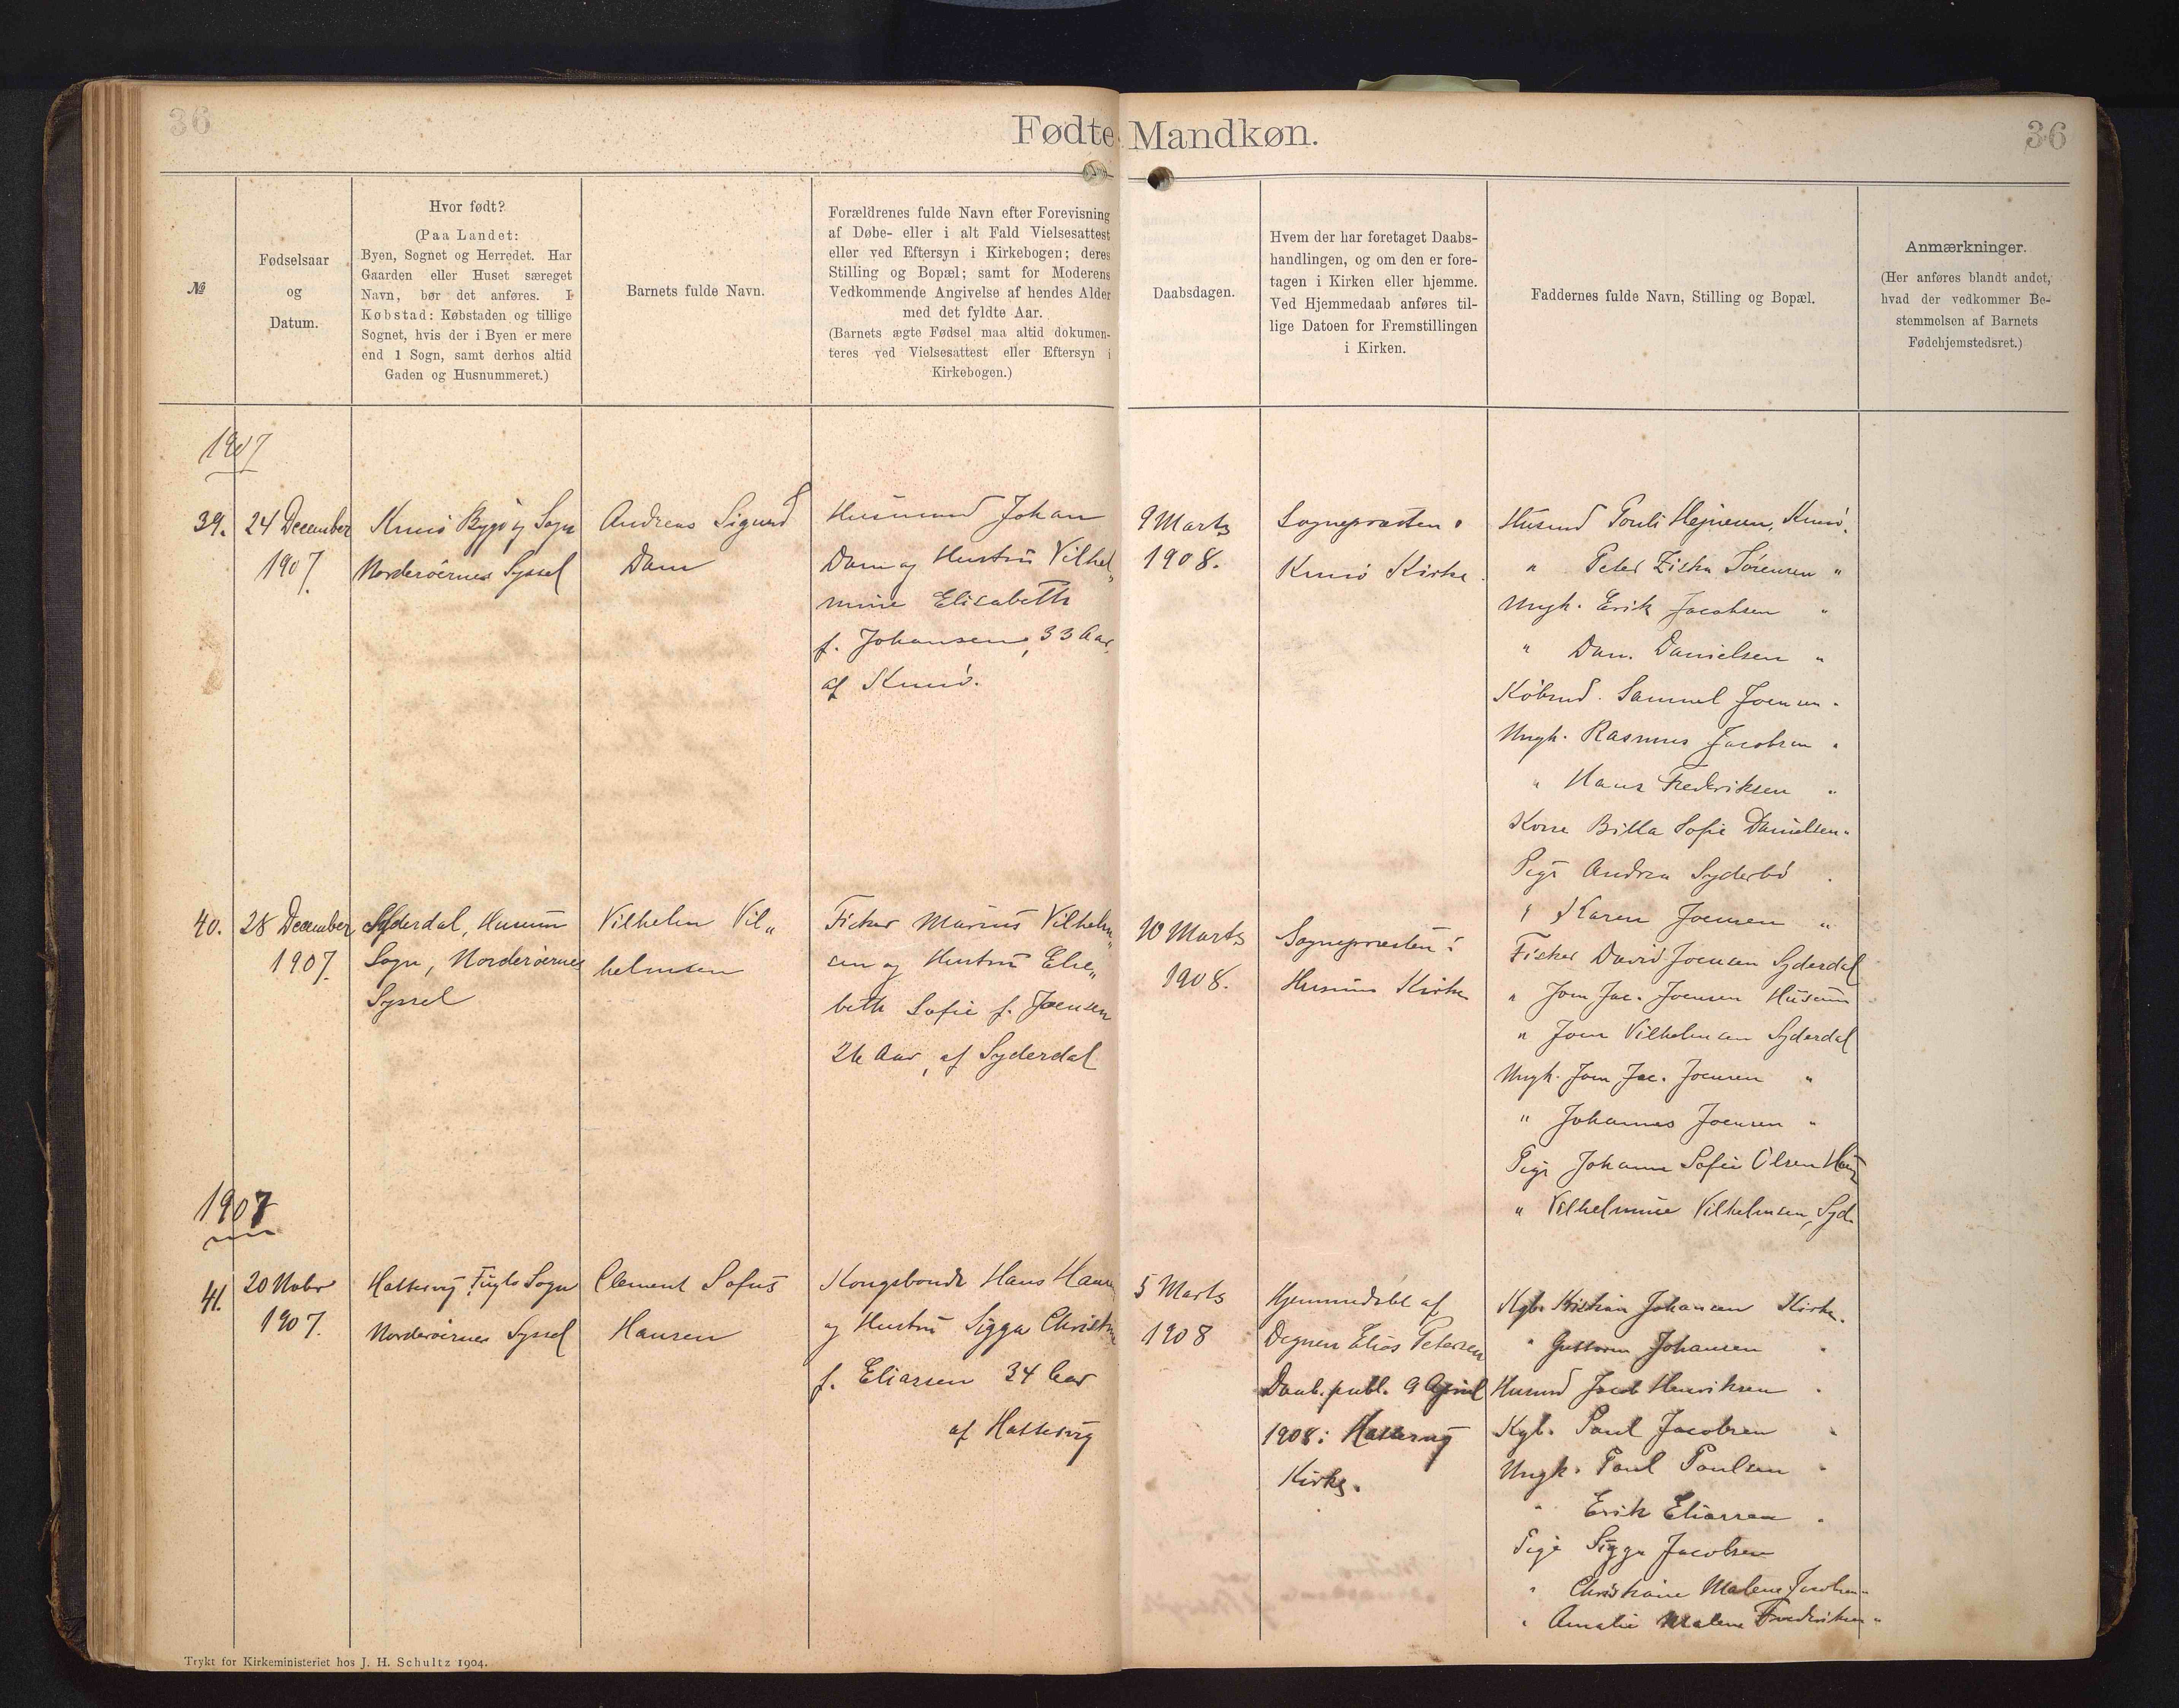 36
Fødte Mandkøn.
36
№
Fødselsaar
og
Datum.
Hvor født?
(Paa Landet:
Byen, Sognet og Herredet. Har
Gaarden eller Huset særeget
Navn, bør det anføres. I
Købstad: Købstaden og tillige
Sognet, hvis der i Byen er mere
end 1 Sogn, samt derhos altid
Gaden og Husnummeret.)
Barnets fulde Navn.
Forældrenes fulde Navn efter Forevisning
af Døbe- eller i alt Fald Vielsesattest
eller ved Eftersyn i Kirkebogen; deres
Stilling og Bopæl; samt for Moderens
Vedkommende Angivelse af hendes Alder
med det fyldte Aar.
(Barnets ægte Fødsel maa altid dokumen-
teres ved Vielsesattest eller Eftersyn i
Kirkebogen.)
Daabsdagen.
Hvem der har foretaget Daabs-
handlingen, og om den er fore-
tagen i Kirken eller hjemme.
Ved Hjemmedaab anføres til-
lige Datoen for Fremstillingen
i Kirken.
Faddernes fulde Navn, Stilling og Bopæl.
Anmærkninger.
(Her anføres blandt andet,
hvad der vedkommer Be-
stemmelsen af Barnets
Fødehjemstedsret.)
1907
39.
24 December
1907.
Kunø Bygd og Sogn
Norderøernes Syssel
Andreas Sigurd
Dam
Husmand Johan
Dam og Hustru Vilhel„
mine Elisabeth
f. Johansen, 33 Aar,
af Kunø.
9 Marts
1908.
Sognepræsten i
Kunø Kirke.
Husmd Pouli Hejnesen, Kunø.
" Peter Ziska Sørensen "
Ungk. Erik Jacobsen "
" Dan. Danielsen "
Købmd. Samuel Joensen "
Ungk. Rasmus Jacobsen "
" Hans Frederiksen "
Kone Billa Sofie Danielsen "
Pige Andrea Syderbø
" Karen Joensen "
40.
28 December
1907.
Syderdal, Husum
Sogn, Norderøernes
Syssel
Vilhelm Vil„
helmsen
Fisker Marius Vilhelm„
sen og Hustru Else„
beth Sofie f. Joensen
26 Aar, af Syderdal
10 Marts
1908.
Sognepræsten i
Husum Kirke
Fisker David Joensen Syderdal
" Joen Jac. Joensen Husum
" Joen Vilhelmsen Syderdal
Ungk. Joen Jac. Joensen "
" Johannes Joensen "
Pige Johanne Sofie Olsen
" Vilhelmine Vilhelmsen, Syd.
1907
41.
20 Novbr
1907.
Hattesvig, Fuglø Sogn
Norderøernes Syssel
Clement Sofus
Hansen
Kongsbonde Hans Hansen
og Hustru Sigga Christine
f. Eliassen 34 Aar
af Hattesvig
5 Marts
1908
Hjemmedøbt af
Degnen Elias Petersen
Daab. publ. 9 April
1908 i Hattesvig
Kirke.
Kgb. Kristian Johansen Kirke.
" Guttorm Johansen "
Husmd Jacob Henriksen "
Kgb. Poul Jacobsen "
Ungk. Poul Poulsen "
" Erik Eliassen "
Pige Sigga Jacobsen
" Christiane Malene Jacobsen "
" Amalie Malene Frederiksen "
Trykt for Kirkeministeriet hos J. H. Schultz 1904.